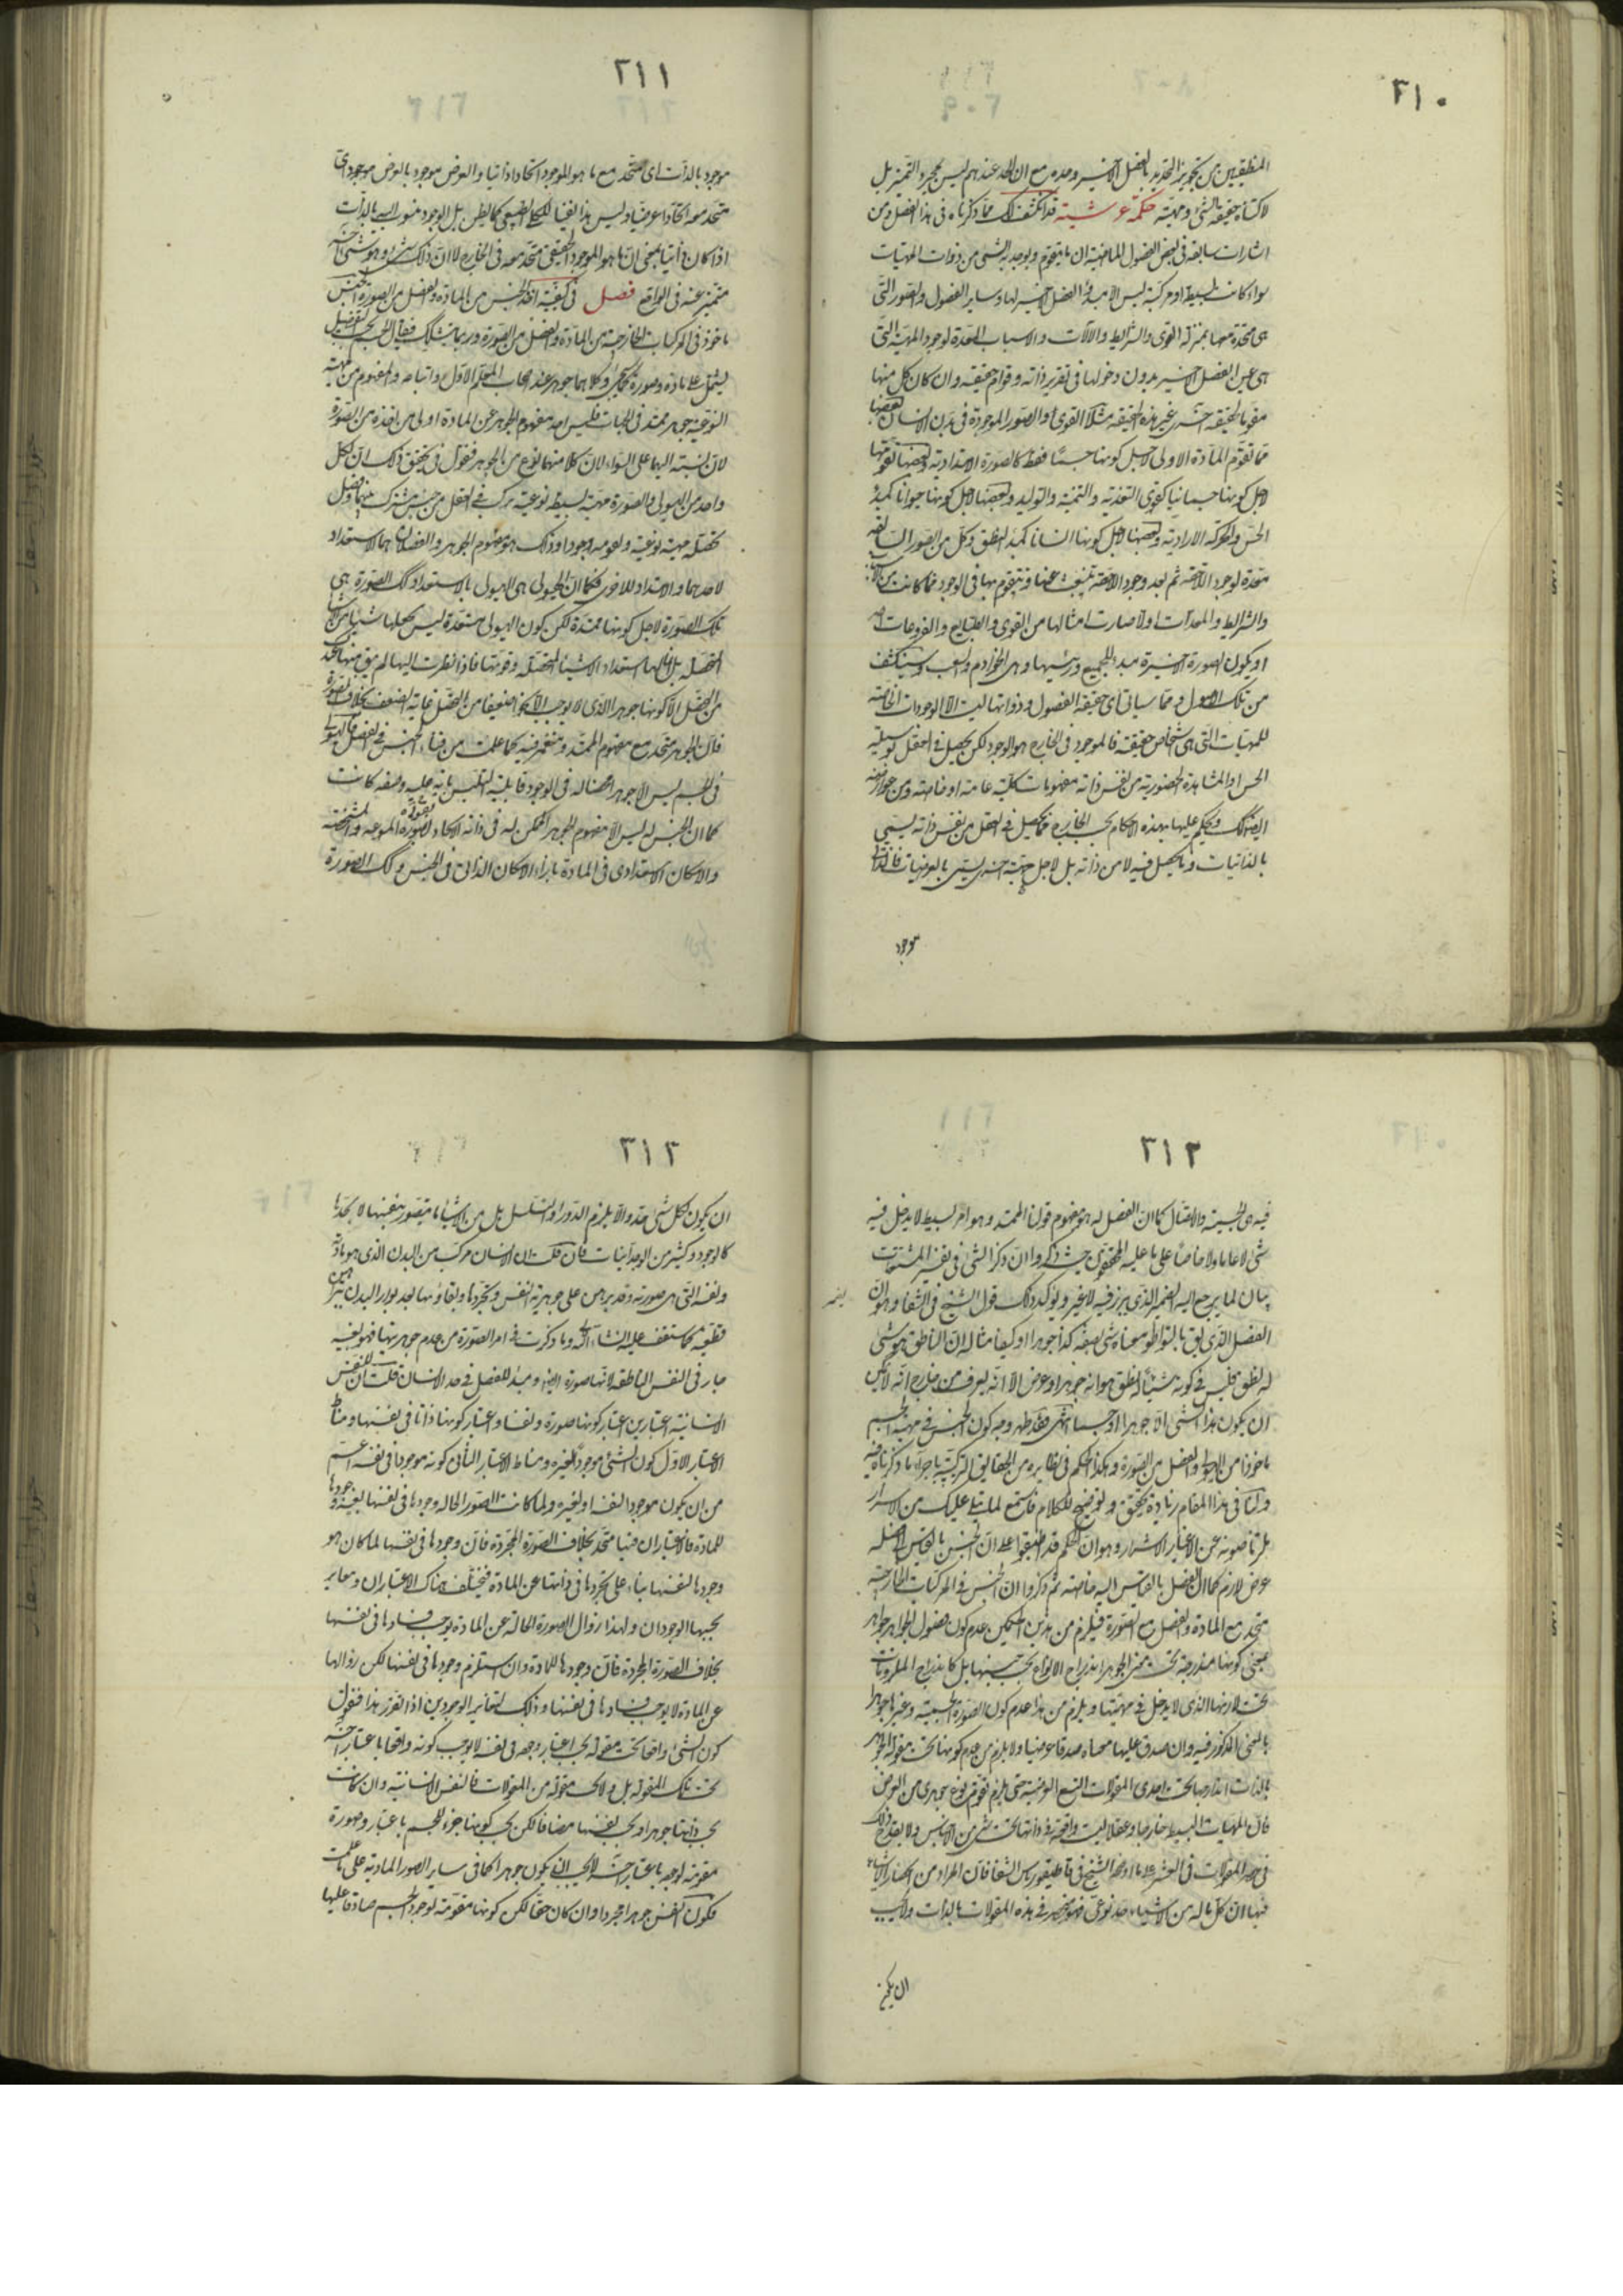 ٢١٠
المنطقيين من تجويز التحديد بالفصل الاخير وحده مع ان الحد عندهم ليس بمجرد التميز بل
لاكتناه حقيقة الشئ ومهيته حكمة عرشية قد انكشف لك مما ذكرناه فى هذا الفصل ومن
اشارات سابقه فى بعض الفصول الماضية ان ما يتقوم ويوجد به الشئ من ذوات المهيات
سواء كانت بسيطة او مركبة ليس الا مبدأ الفصل الاخير لها وساير الفصول والصور التى
هى متحدة معها بمنزلة القوى والشرايط والآلات والاسباب المعدة لوجود المهية التى
هى عين الفصل الاخير بدون دخولها فى تقرير ذاته وقوام حقيقته وان كان كل منها
مقوما لحقيقة اخرى غير هذه الحقيقة مثلا القوى او الصور الموجودة فى بدن الانسان بعضها
مما تقوم المادة الاولى لاجل كونها جسما فقط كالصورة الامتدادية وبعضها تقومها
لاجل كونها جسما نباتيا كقوى التغذية والتنمية والتوليد وبعضها لاجل كونها حيوانا كمبدأ
الحس والحركة الارادية وبعضها لاجل كونها انسانا كمبدأ النطق وكل من الصور السابقة
معدة لوجود اللاحقة ثم بعد وجود اللاحقة ينبعث عنها وتتقوم بها فى الوجود فما كانت من الاسباب
والشرايط والمعدات اولا صارت امثالها من القوى والطبايع والفروعات اخيرا
او يكون الصورة الاخيرة مبدأ للجميع ورئيسها وهى الخوادم والشعب وسينكشف
من تلك الاصول ومما سياتى ان حقيقة الفصول وذواتها ليست الا الوجودات الخاصة
للمهيات التى هى اشخاص حقيقته فالموجود فى الخارج هو الوجود لكن يحصل فى العقل بوسيلة
الحس او المشاهدة الحضورية من نفس ذاته مفهومات كلية عامة او خاصة ومن عوارضه
ايضا كك ويحكم عليها بهذه الاحكام بحسب الخارج فما يحصل فى العقل من نفس ذاته يسمى
بالذاتيات وما يحصل فيه لا من ذاته بل لاجل جهة اخرى يسمى بالعرضيات فالذاتى
موجود
٢١١
موجود بالذات اى متحد مع ما هو الموجود اتحادا ذاتيا والعرض موجود بالعرض موجود اى
متحد معه اتحادا عرضيا وليس هذا نفيا للكلى الطبيعى كما يظن بل الوجود منسوب اليه بالذات
اذا كان ذاتيا بمعنى ان ما هو الموجود الحقيقى متحد معه فى الخارج لا ان ذلك شئ وهو شئ آخر
متميز عنه فى الواقع فصل فى كيفية اخذ الجنس من المادة والفصل من الصورة الجنس
ماخوذ فى المركبات الخارجية من المادة والفصل من الصورة وربما يتشكك فيقال
يشتمل على مادة وصورة وكلاهما جوهر عند اصحاب المعلم الاول واتباعه والمفهوم من مهيته
النوعية جوهر ممتد فى الجهات فليس اخذ مفهوم الجوهر عن المادة اولى من اخذه من الصورة
لان نسبته اليهما على السواء لان كلا منهما نوع من الجوهر فنقول فى تحقيق ذلك ان لكل
واحد من الهيولى والصورة مهية بسيطة نوعية مركب فى العقل من جنس مشترك بينهما وفصل
تحصله مهية نوعية ويقومه وجودا وذلك هو مفهوم الجوهر والفصلان هما الاستعداد
لاحدهما والامتداد للاخرى فكما ان الهيولى هى الهيولى بالاستعداد كك الصورة هى
تلك الصورة لاجل كونها ممتدة لكن كون الهيولى مستعدة ليس يجعلها شيئا من الاشيا
المحصلة بل لها استعداد الاشيا المحصلة وقوتها فاذا نظرت اليها لم يبق منها لك
من التحصل الا كونها جوهرا الذى لا يوجب الا نحوا ضعيفا من التحصل غاية الضعف بخلاف الصورة
فان الجوهر متحد مع مفهوم الممتد ومنغمر فيه كما علمت من فناء الجنس فى الفصل فالهيولى
فى الجسم ليس الا جوهر استعداد له فى الوجود قابلية التلبس باية حلية وصفة كانت
كما ان الجنس له ليس الا مفهوم الجوهر الممكن له فى ذاته الاتحاد بصوره المنوعة والمشخصة
والامكان الاستعدادى فى المادة بازاء الامكان الذاتى فى الجنس وكك الصورة
٢١٢
فيه هى الجسمية والاتصال كما ان الفصل له هو مفهوم قولنا الممتد وهو امر بسيط لا يدخل فيه
شئ لا عاما ولا خاصا على ما عليه المحققون حيث ذكروا ان ذكر الشئ فى تفسير المشتقات
بيان لما يرجع اليه الضمير الذى يبرز فيه لا غير ويؤكد ذلك قول الشيخ فى الشفا وهو ان
الفصل الذى يق بالتواطؤ معناه شئ بصفة كذا جوهرا او كيفا مثاله ان الناطق هو شئ
له نطق فليس فى كونه شيئا له نطق هو انه جوهر او عرض الا انه يعرف من خارج انه لا يمكن
ان يكون هذا الشئ الا جوهرا او جسما انتهى فقد ظهر وجه كون الجنس فى مهية الجسم
ماخوذا من الهيولى والفصل من الصورة وهكذا الحكم فى نظايره من الحقايق التركيبية باجراء ما ذكرناه فيه
ولنا فى هذا المقام زيادة تحقيق وتوضيح للكلام فاستمع لما يتلى عليك من الاسرار
ملتزما صونه عن الاغيار الاشرار وهو ان القوم قد اطبقوا على ان الجنس بالقياس الى فصله
عرض لازم كما ان الفصل بالقياس اليه خاصة ثم ذكروا ان الجنس فى المركبات الخارجية
متحد مع المادة والفصل مع الصورة فيلزم من هذين الحكمين عدم كون فصول الجواهر جواهر
بمعنى كونها مندرجة تحت معنى الجوهر اندراج الانواع تحت جنسها بل كاندراج الملزومات
تحت لازمها الذى لا يدخل فى مهيتها ويلزم من هذا عدم كون الصورة الجسمية وغيرها جوهرا
بالمعنى المذكور فيه وان صدق عليها معناه صدقا عرضيا ولا يلزم من عدم كونها تحت مقولة الجوهر
بالذات اندراجها تحت احدى المقولات التسع العرضية حتى يلزم تقوم نوع جوهرى من العرض
فان المهيات البسيطة خارجا وعقلا ليست واقعة فى ذاتها تحت شئ من الاجناس ولا يقدح ذلك
فى حصر المقولات فى العشر على ما اوضحه الشيخ فى قاطيقورياس الشفا فان المراد من انحصار الاشياء
فيها ان كل ما له من الاشياء حد نوعى فهو منحصر فى هذه المقولات بالذات ولا يجب
ان يكون
٢١٣
ان يكون لكل شئ حد والا يلزم الدور او التسلسل بل من الاشياء ما يتصور بنفسها لا بحدها
كالوجود وكثير من الوجدانيات فان قلت ان الانسان مركب من البدن الذى هو مادته
ونفسه التى هى صورته وقد برهن على جوهرية النفس وتجردها وبقاؤها بعد بوار البدن ببراهين
قطعية كما ستقف عليه انشاء الله وما ذكرت فى امر الصورة من عدم جوهريتها فهو بعينه
جار فى النفس الناطقة لانها صورة ايضا ومبدأ للفصل فى حد الانسان قلت ان للنفس
الانسانية اعتبارين اعتبار كونها صورة ونفسا واعتبار كونها ذاتا فى نفسها ومناط
الاعتبار الاول كون الشئ موجودا لغيره ومناط الاعتبار الثانى كونه موجودا فى نفسه اعم
من ان يكون موجودا لنفسه او لغيره ولما كانت الصور الحالة وجودها فى نفسها بعينه وجودها
للمادة فالاعتباران فيها متحد بخلاف الصورة المجردة فان وجودها فى نفسها لما كان هو
وجودها لنفسها بناء على تجردها فى ذاتها عن المادة فيختلف هناك الاعتباران ويغاير
بحسبها الوجودان ولهذا زوال الصورة الحالة عن المادة يوجب فسادها فى نفسها
بخلاف الصورة المجردة فان وجودها للمادة وان استلزم وجودها فى نفسها لكن زوالها
عن المادة لا يوجب فسادها فى نفسها وذلك لتغاير الوجودين اذا تقرر هذا فنقول
كون الشئ واقعا تحت مقولة بحسب اعتبار وجوده فى نفسه لا يوجب كونه واقعا باعتبار آخر
تحت تلك المقولة بل ولا تحت مقولة من المقولات فالنفس الانسانية وان كانت
بحسب ذاتها جوهرا وبحسب نفسيتها مضافا لكن بحسب كونها جزء للجسم باعتبار وصورة
مقومة لوجوده باعتبار آخر لا يجب ان يكون جوهرا كما فى ساير الصور المادية على ما علمت
فكون النفس جوهرا مجردا وان كان حقا لكن كونها مقومة لوجود الجسم صادقا عليها